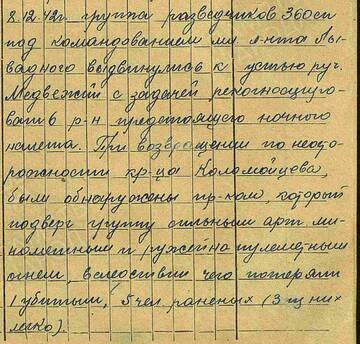 8.12.42г. группа разведчиков 360сп
под командованием мл л-нта Лы-
вадного выдвинулись к устью руч.
Медвежий с задачей рекогносциро-
вать р-н предстоящего ночного
налета. При возвращении по неосто-
рожности кр-ца Коломойцева,
были обнаружены пр-ком, который
подверг группу сильным арт. ми-
нометным и ружейно пулеметным
огнем, вследствии чего потеряли
1 убитым, 5 чел. раненых (3 из них
легко).